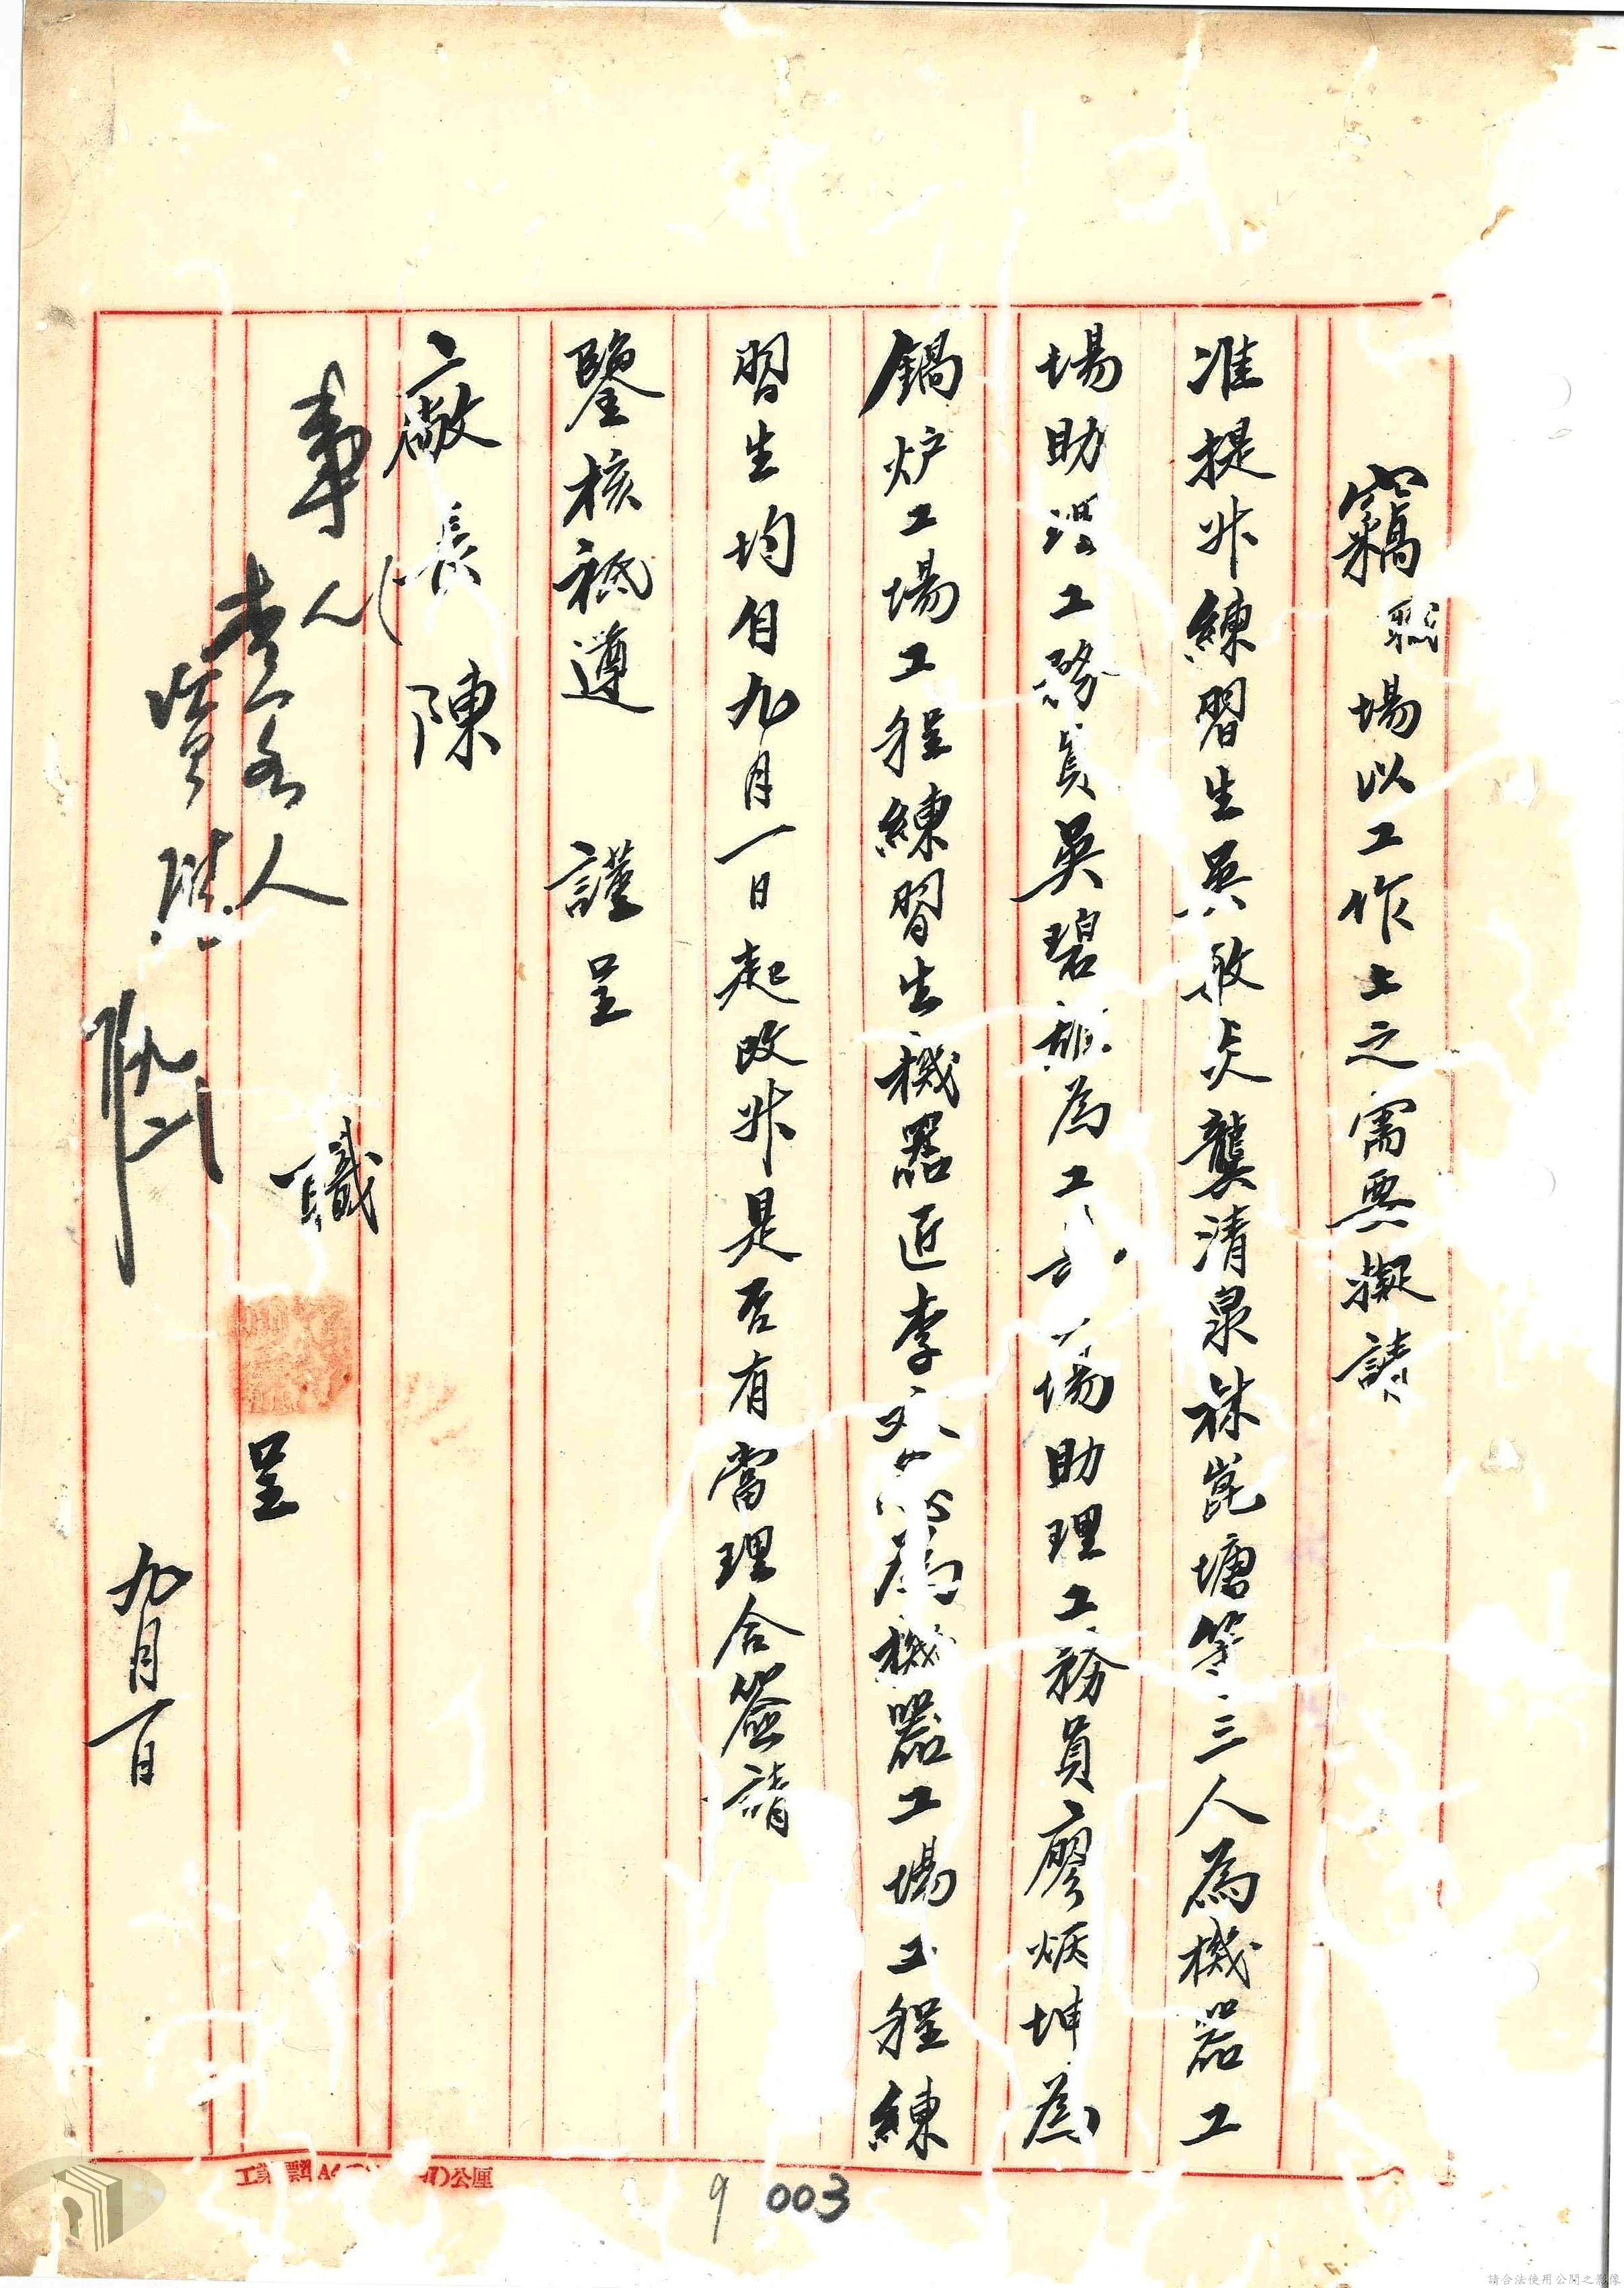 竊職場以工作上之需要擬請
准提升練習生吳啟炎龔清泉林崑塘等三人為機器工
場助理工務員吳碧為工場助理工務員廖炳坤為
鍋炉工場工程練習生機器匠李文為機器工場工程練
習生均自九月一日起改升是否有當理合簽請
鑒核祗遵 謹呈
廠長陳
職 呈
九月一日
事人
9 003
請合法使用公開之影像